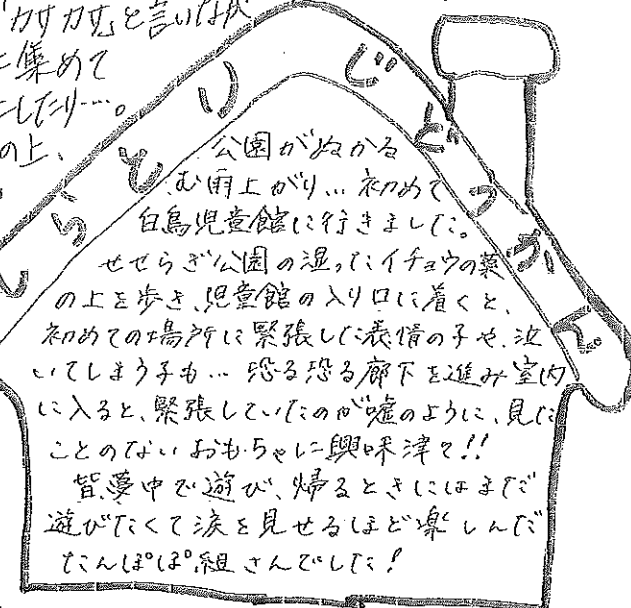 「カサカサ」と言いなが
に集めて
にしたり…。
の上、
しらとりじどうかんで
公園がぬかる
む雨上がり…初めて
白鳥児童館に行きました。
せせらぎ公園の湿ったイチョウの葉
の上を歩き、児童館の入り口に着くと、
初めての場所に緊張した表情の子や、泣
いてしまう子も…恐る恐る廊下を進み室内
に入ると、緊張していたのが嘘のように、見た
ことのないおもちゃに興味津々!!
皆夢中で遊び、帰るときにはまだ
遊びたくて涙を見せるほど楽しんだ
たんぽぽ組さんでした！